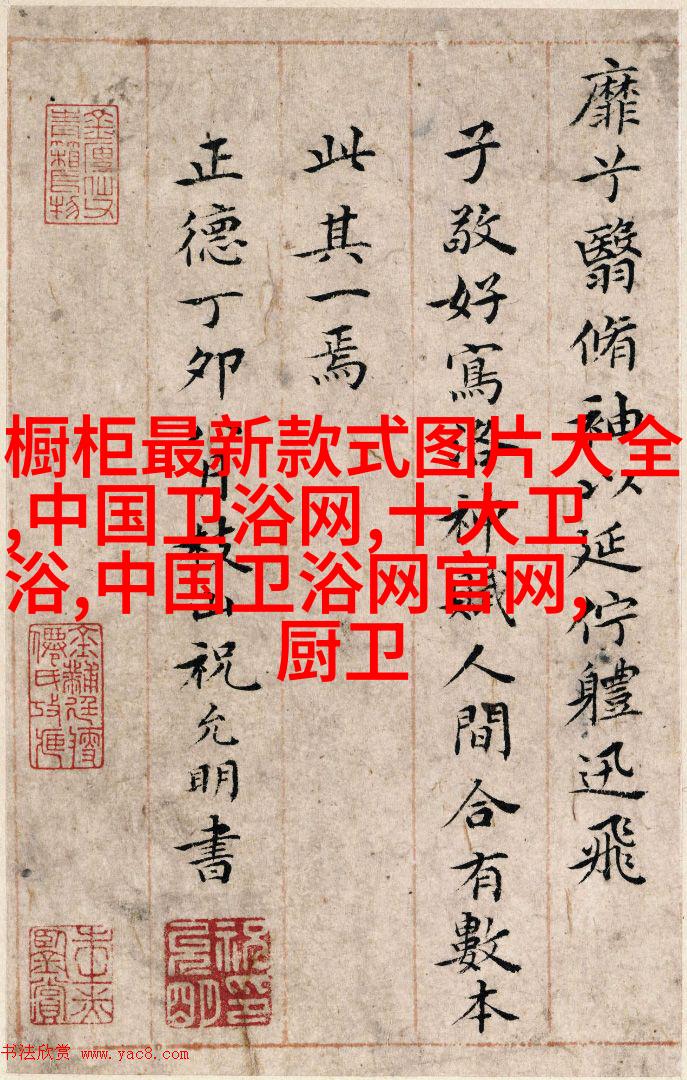 靡兮翳脩袖以延佇體迅飛
子敬好寫洛神賦人間合有數本
此其一焉
正德丁卯八月枝山祝允明書
橱柜最新款式图片大全
,中国卫浴网,十大卫
浴,中国卫浴网官网,
厨卫
书法欣赏 www.yac8.com